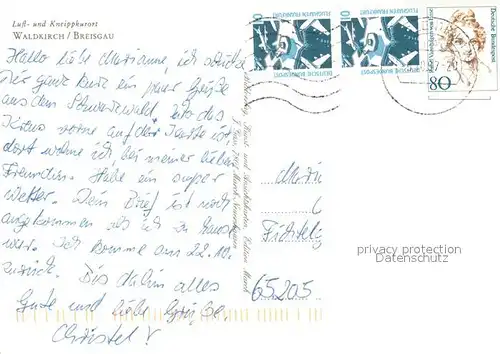 Luft- und Kneippkurort
WALDKIRCH / BREISGAU
Hallo liebe Marianne, ich schicke
Dir ganz kurz ein paar Grüße
aus dem Schwarzwald, wo das
vorne auf der Karte ist
dort wohne ich, bei meiner lieben
Freundin. Habe ein super
Wetter. Dein Brief ist noch
angekommen als ich zu Hause
war. Ich komme am 22.10.
zurück. Bis dahin alles
Gute und liebe Grüße.
Christel!
FLUGHAFEN FRANKFURT
10
DEUTSCHE BUNDESPOST
FLUGHAFEN FRANKFURT
10
DEUTSCHE BUNDESPOST
Deutsche Bundespost
80
65205
privacy protection
Datenschutz